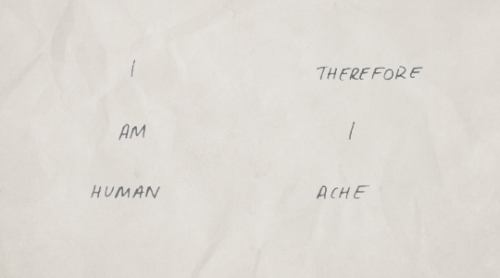 I
AM
HUMAN
THEREFORE
I
ACHE